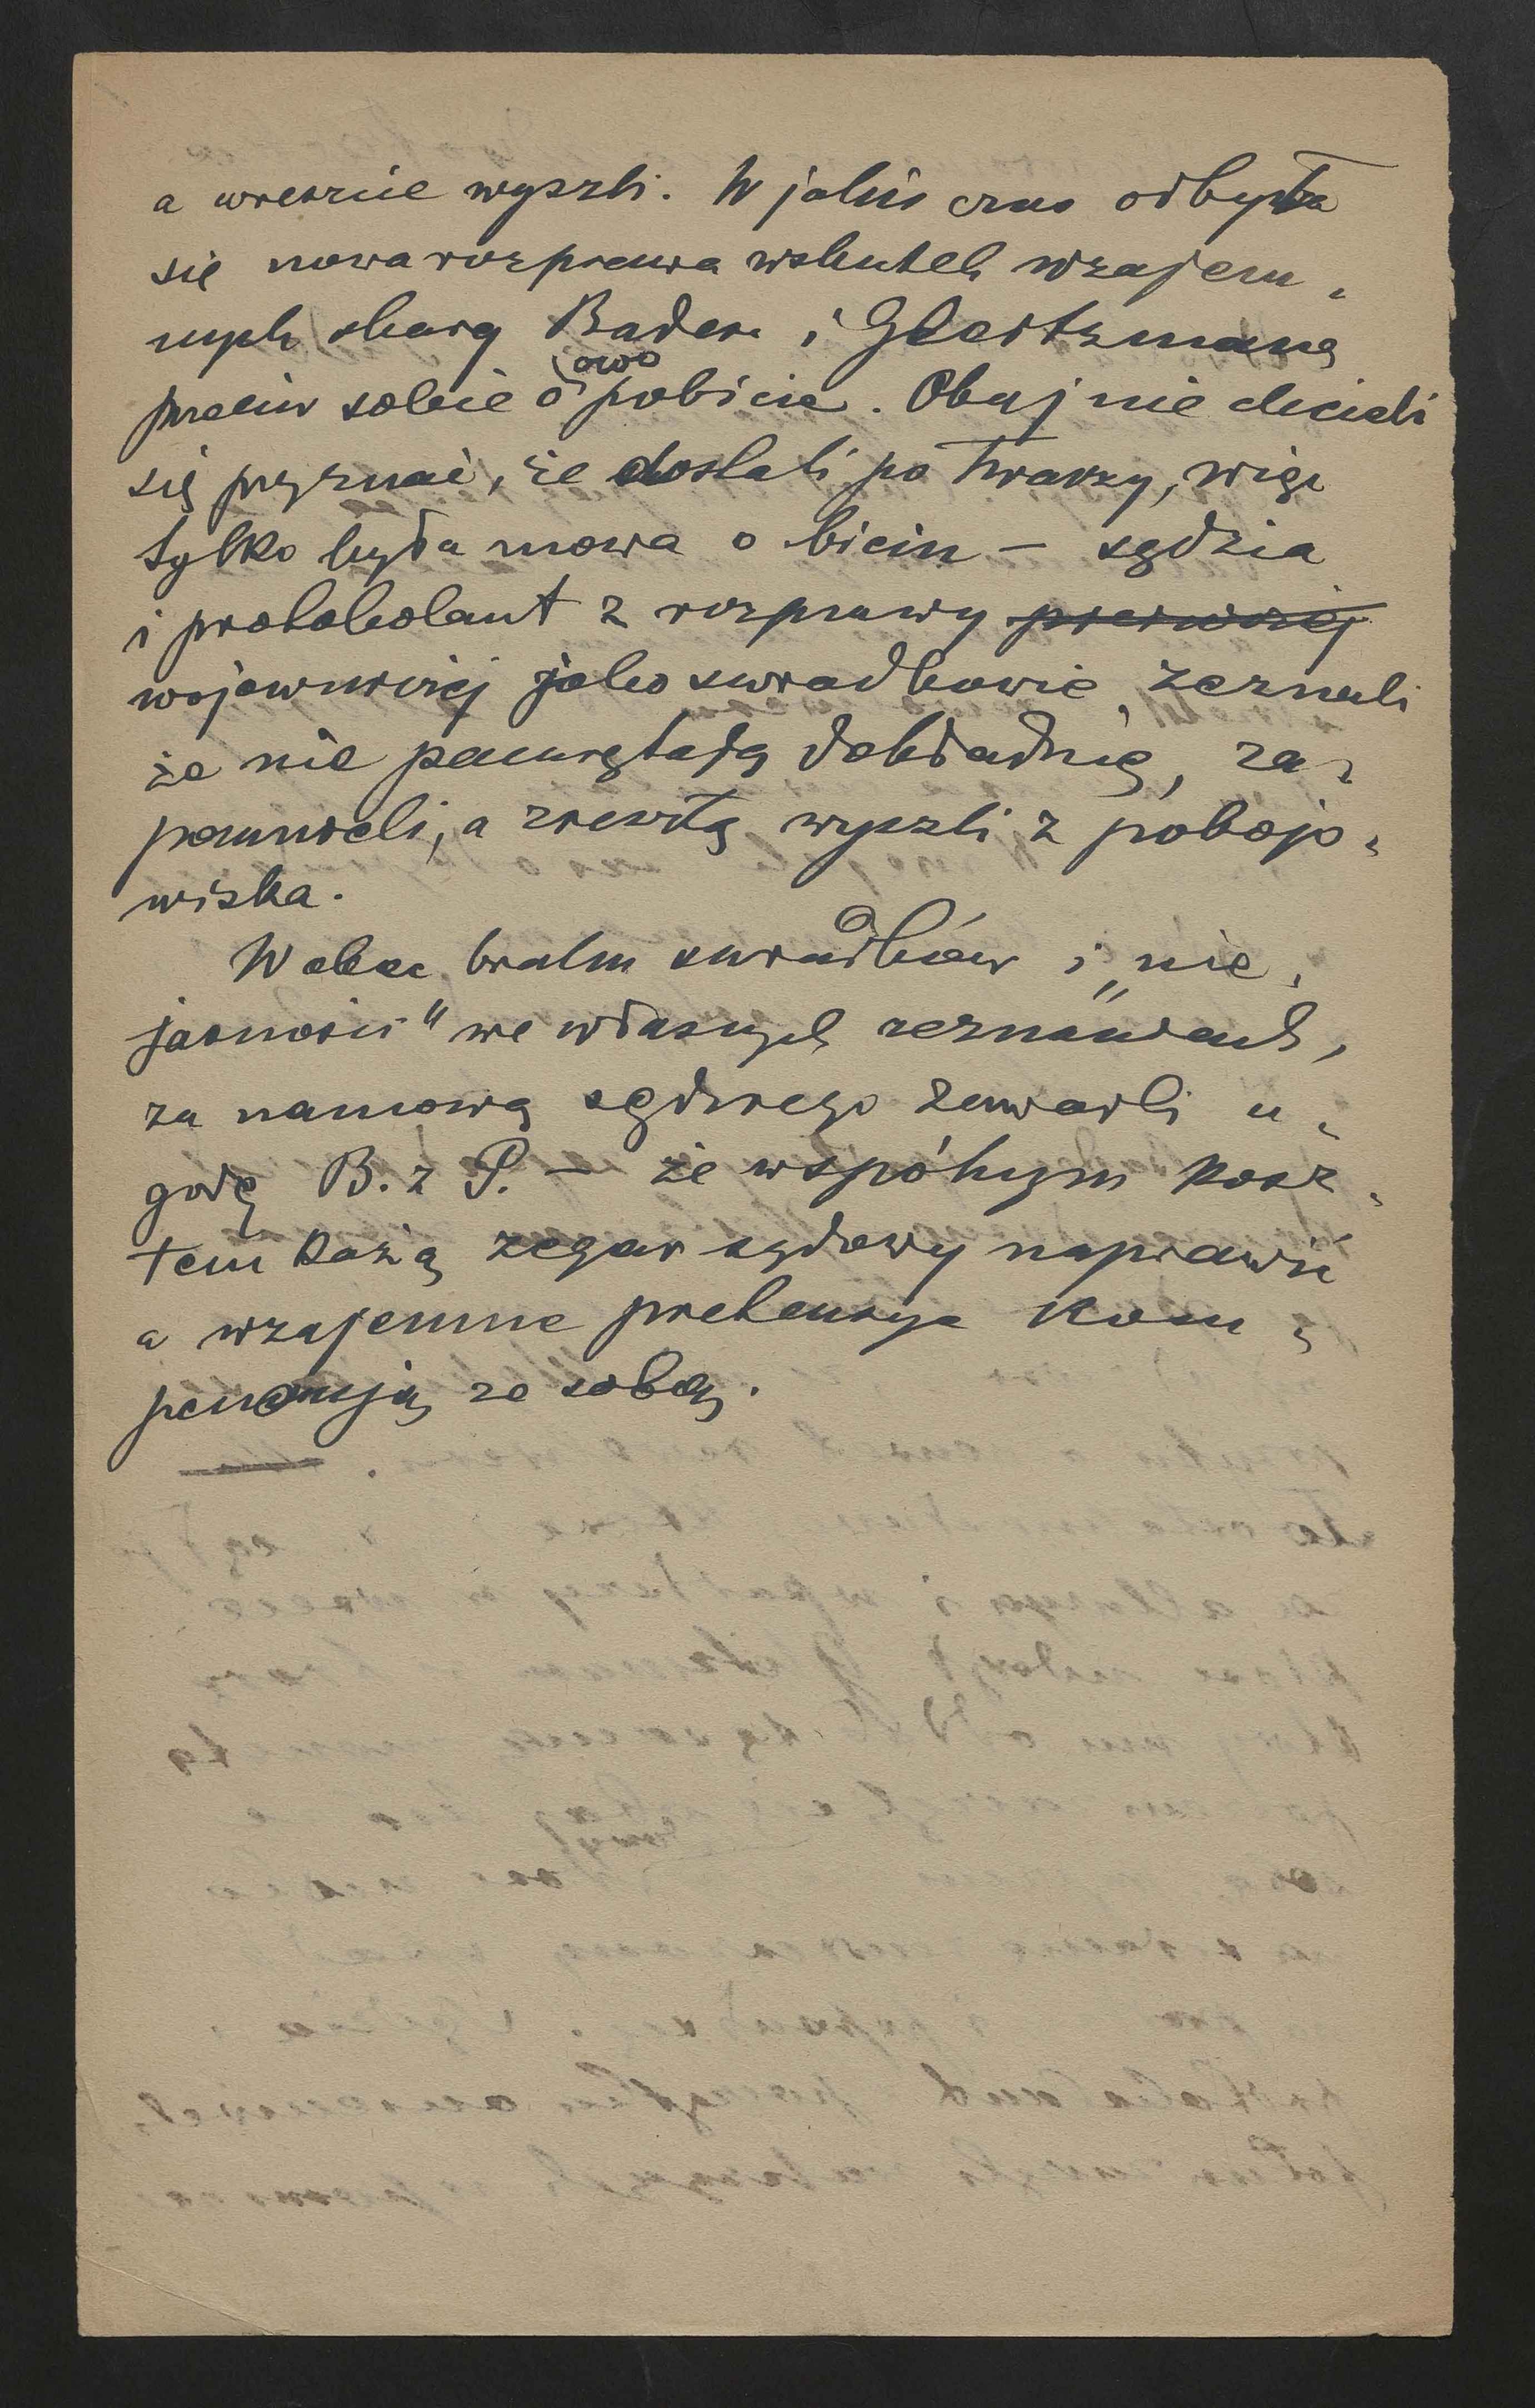 a wreszcie wyszli. W jakiś czas odbyła
się nowa rozprawa wskutek wzajem-
nych skarg Badera i Gleitzmana
przeciw sobie o owo pobicie. Obaj nie chcieli
się przyznać, że dostali po twarzy, więc
tylko była mowa o biciu – sędzia
i protokolant z rozprawy pierwszej
wojowniczej jako świadkowie zeznali
że nie pamiętają dokładnie, za-
pomnieli, a zresztą wyszli z pobojo-
wiska.
Wobec braku świadków i „nie-
jasności" we własnych zeznaniach,
za namową sędziego zawarli u-
godę B. z P. – że wspólnym kosz-
tem każą zegar sądowy naprawić
a wzajemne pretensye kom-
pensują ze sobą.